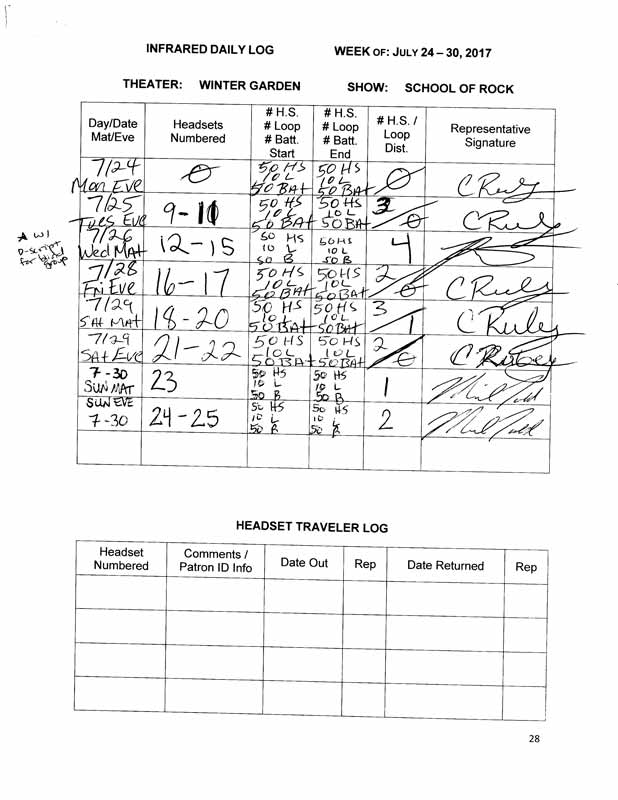 INFRARED DAILY LOG WEEK OF: JULY 24 – 30, 2017
THEATER: WINTER GARDEN SHOW: SCHOOL OF ROCK
Day/Date Mat/Eve | Headsets Numbered | # H.S. # Loop # Batt. Start | # H.S. # Loop # Batt. End | # H.S. / Loop Dist. | Representative Signature
7/24 Mon Eve | 0 | 50 HS 10 L 50 BAt | 50 HS 10 L 50 BAt | 0
7/25 Tues Eve | 9-10 | 50 HS 10 L 50 BAt | 50 HS 10 L 50 BAt | 3/0
★ w/ D-Script for blind group
7/26 Wed MAt | 12-15 | 50 HS 10 L 50 B | 50 HS 10 L 50 B | 4
7/28 Fri Eve | 16-17 | 50 HS 10 L 50 BAt | 50 HS 10 L 50 BAt | 2/0
7/29 SAt MAt | 18-20 | 50 HS 10 L 50 BAt | 50 HS 10 L 50 BAt | 3/1
7/29 SAt Eve | 21-22 | 50 HS 10 L 50 BAt | 50 HS 10 L 50 BAt | 2/0
7-30 SUN MAT | 23 | 50 HS 10 L 50 B | 50 HS 10 L 50 B | 1
SUN EVE 7-30 | 24-25 | 50 HS 10 L 50 B | 50 HS 10 L 50 B | 2
HEADSET TRAVELER LOG
Headset Numbered | Comments / Patron ID Info | Date Out | Rep | Date Returned | Rep
28